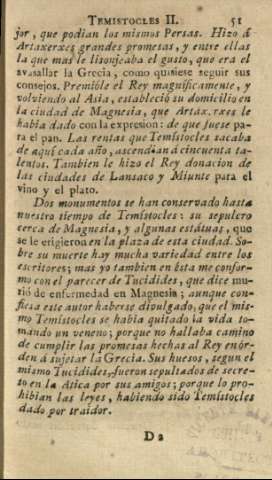 TEMISTOCLES II. 51
jor, que podian los mismos Persas. Hizo á
Artaxerxes grandes promesas, y entre ellas
la que mas le lisonjeaba el gusto, que era el
avasallar la Grecia, como quisiese seguir sus
consejos. Premióle el Rey magníficamente, y
volviendo al Asia, estableció su domicilio en
la ciudad de Magnesia, que Artax.rxes le
habia dado con la expresion: de que fuese pa-
ra el pan. Las rentas que Temístocles sacaba
de aquí cada año, ascendian á cincuenta ta-
lentos. Tambien le hizo el Rey donacion de
las ciudades de Lansaco y Miunte para el
vino y el plato.
Dos monumentos se han conservado hasta
nuestro tiempo de Temístocles: su sepulcro
cerca de Magnesia, y algunas estátuas, que
se le erigieron en la plaza de esta ciudad. So-
bre su muerte hay mucha variedad entre los
escritores; mas yo tambien en ésta me confor-
mo con el parecer de Tucidides, que dice mu-
rió de enfermedad en Magnesia; aunque con-
fiesa este autor haberse divulgado, que el mis-
mo Temistocles se habia quitado la vida to-
mando un veneno; porque no hallaba camino
de cumplir las promesas hechas al Rey en ór-
den á sujetar la Grecia. Sus huesos, segun el
mismo Tucidides, fueron sepultados de secre-
to en la Atica por sus amigos; porque lo pro-
hibian las leyes, habiendo sido Temístocles
dado por traidor.
D 2